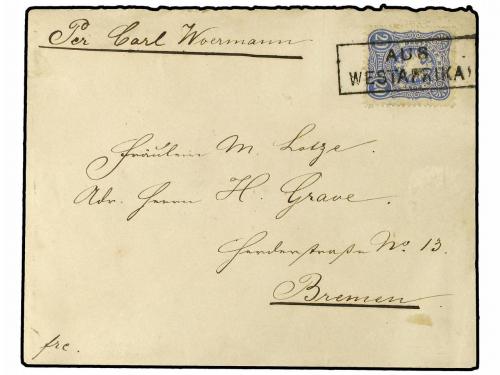 Per Carl Woermann
20 20
AUS
WESTAFRIKA
Fräulein M. Lotze.
Adr. Herrn H. Grave.
Herderstraße No. 13.
Bremen.
frc.